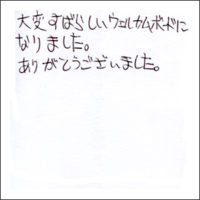 大変すばらしいウェルカムボードに
なりました。
ありがとうございました。